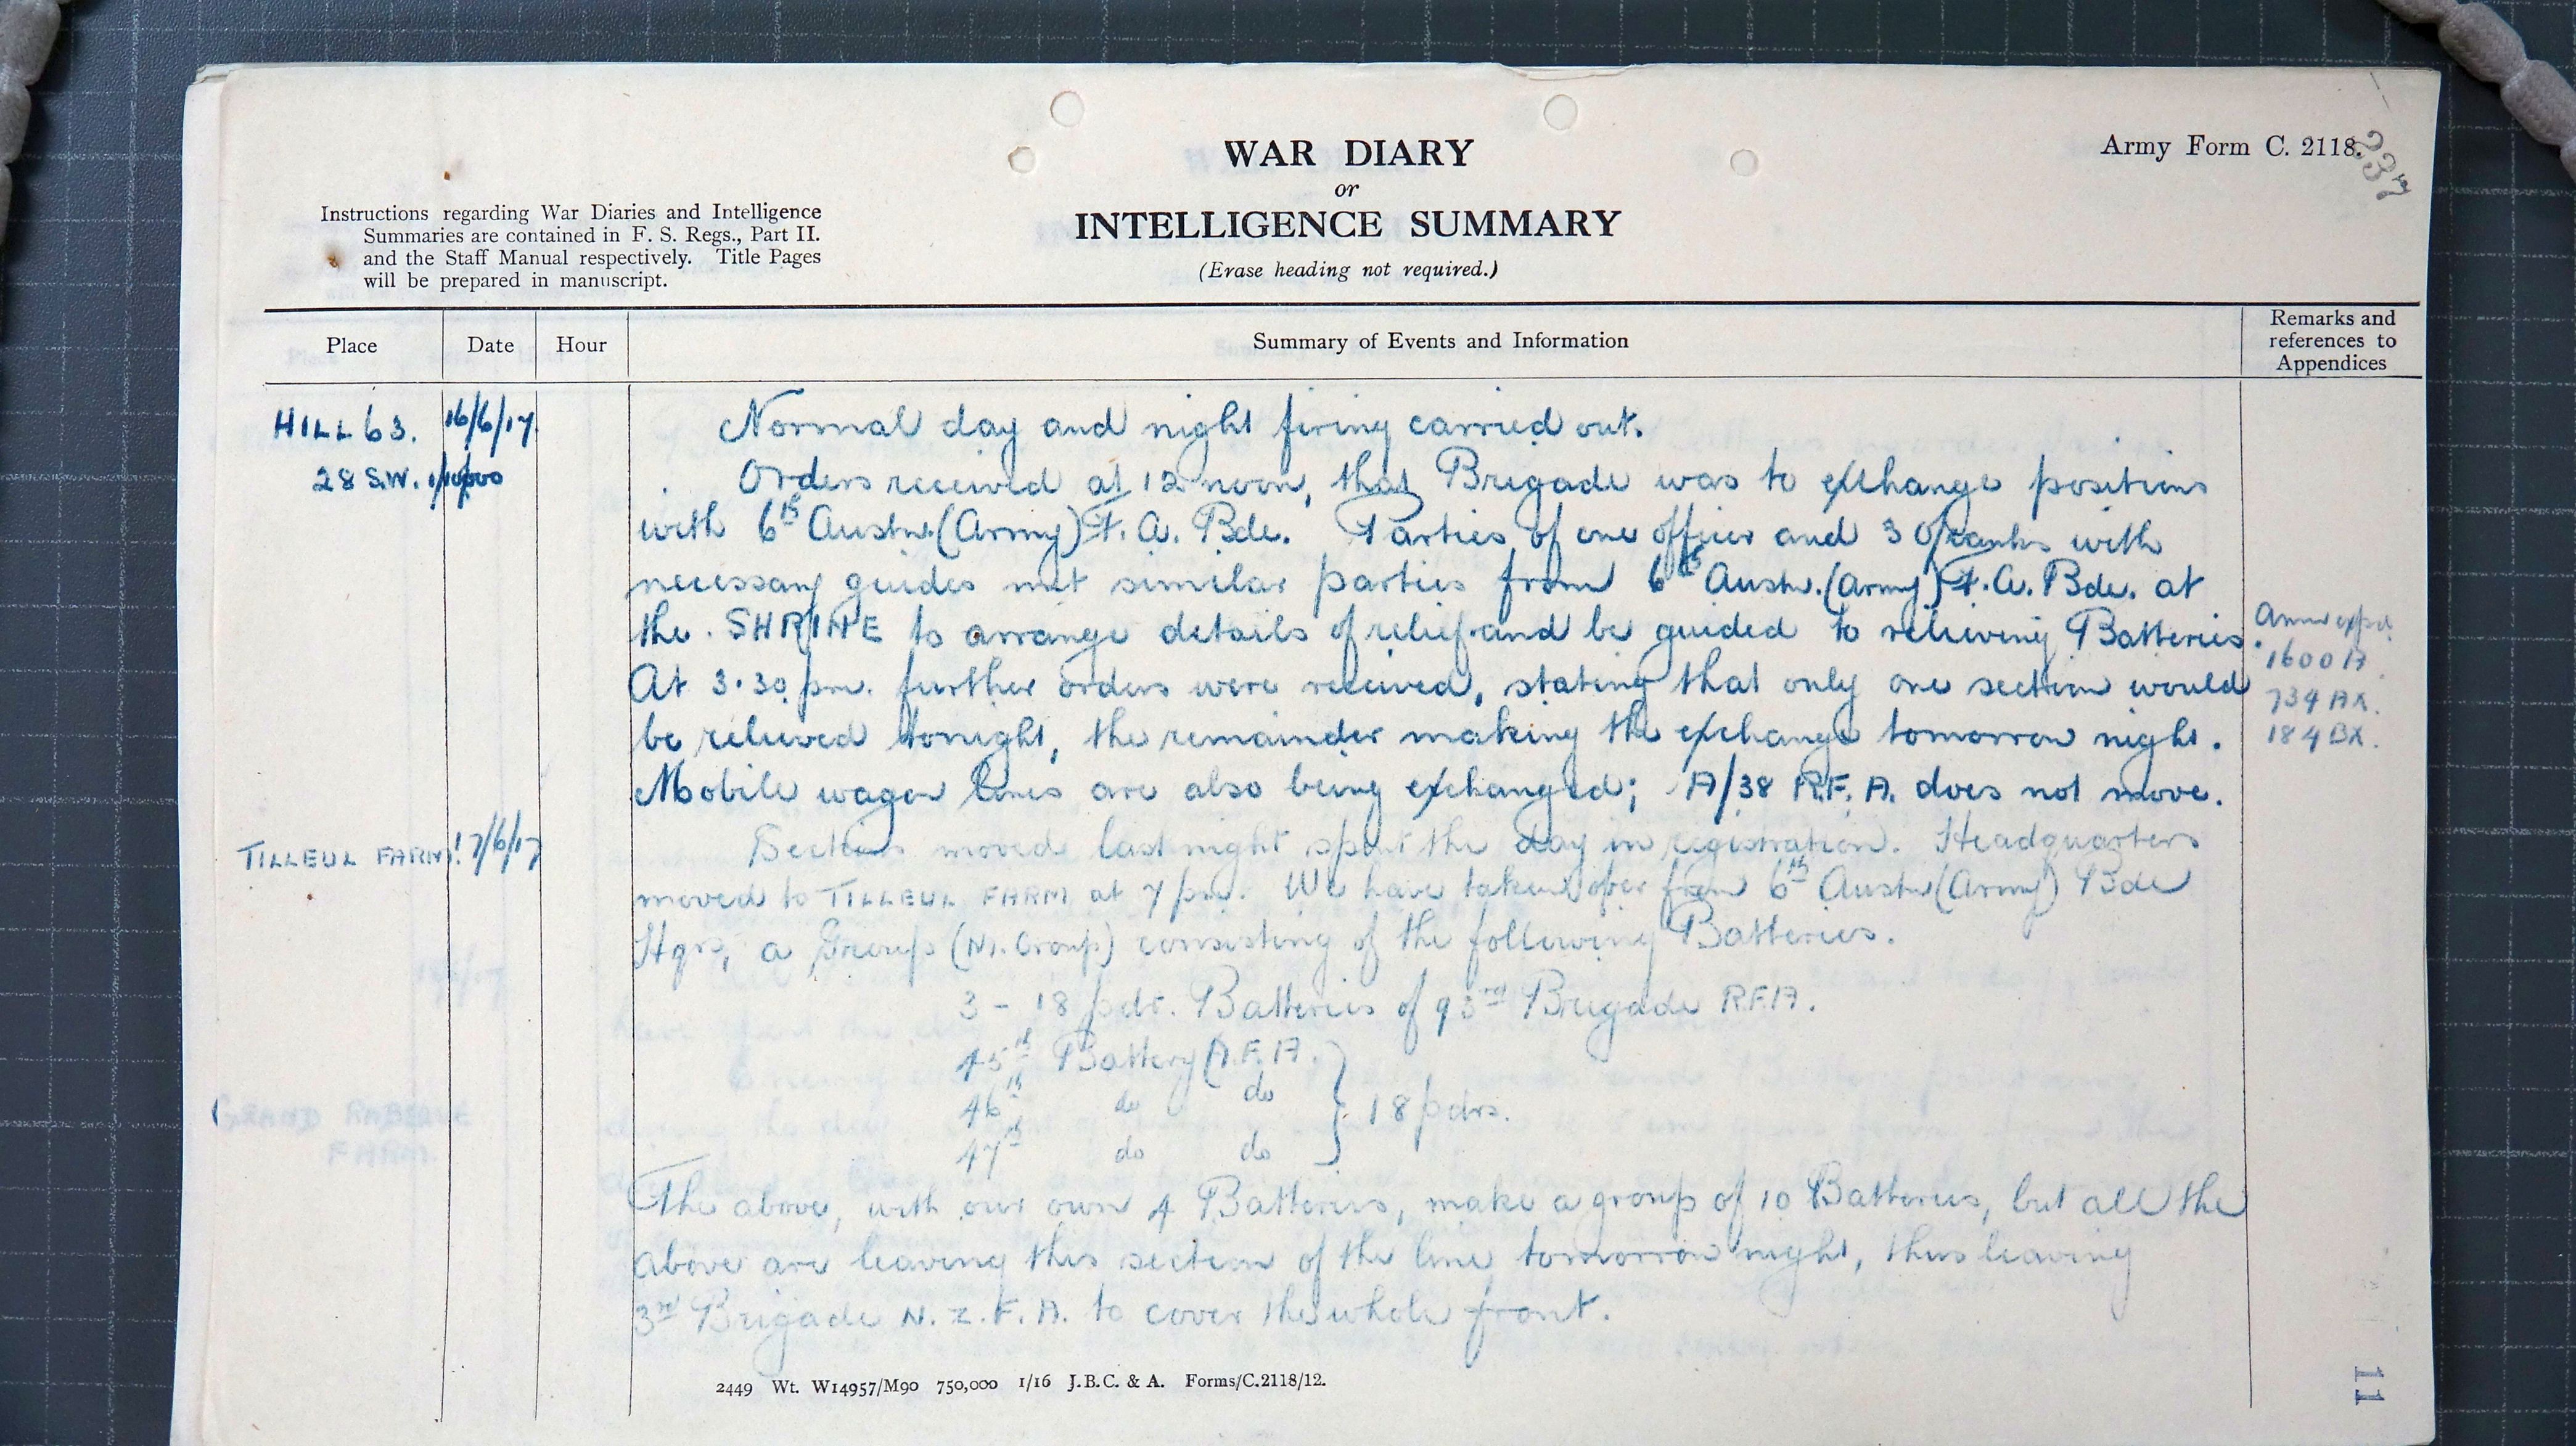 WAR DIARY
or
INTELLIGENCE SUMMARY
(Erase heading not required.)
Army Form C. 2118.
237
Instructions regarding War Diaries and Intelligence
Summaries are contained in F. S. Regs., Part II.
and the Staff Manual respectively. Title Pages
will be prepared in manuscript.
Place Date Hour Summary of Events and Information Remarks and references to Appendices
HILL 63. 16/6/17 Normal day and night firing carried out.
28 S.W. 1/10,000 Orders received at 12 noon, that Brigade was to exchange positions
with 6th Austn. (Army) F. A. Bde. Parties of one officer and 3 O/ranks with
necessary guides met similar parties from 6th Austn. (Army) F. A. Bde. at
the SHRINE to arrange details of relief and be guided to relieving Batteries.
At 3.30 pm. further orders were received, stating that only one section would
be relieved tonight, the remainder making the exchange tomorrow night.
Mobile wagon lines are also being exchanged; A/38 R.F.A. does not move.
Amm expd.
1600 A
734 AX.
184 BX.
TILLEUL FARM 17/6/17 Section moved last night spent the day in registration. Headquarters
moved to TILLEUL FARM at 7 pm. We have taken over from 6th Austn (Army) Bde
Hqrs, a Group (N. Group) consisting of the following Batteries.
3 - 18 pdr. Batteries of 93rd Brigade R.F.A.
45th Battery A.F.A.
46th do do } 18 pdrs.
47th do do
The above, with our own 4 Batteries, make a group of 10 Batteries, but all the
above are leaving this section of the line tomorrow night, thus leaving
3rd Brigade N.Z.F.A. to cover the whole front.
GRAND RABEQUE
FARM.
2449 Wt. W14957/M90 750,000 1/16 J.B.C. & A. Forms/C.2118/12.
11